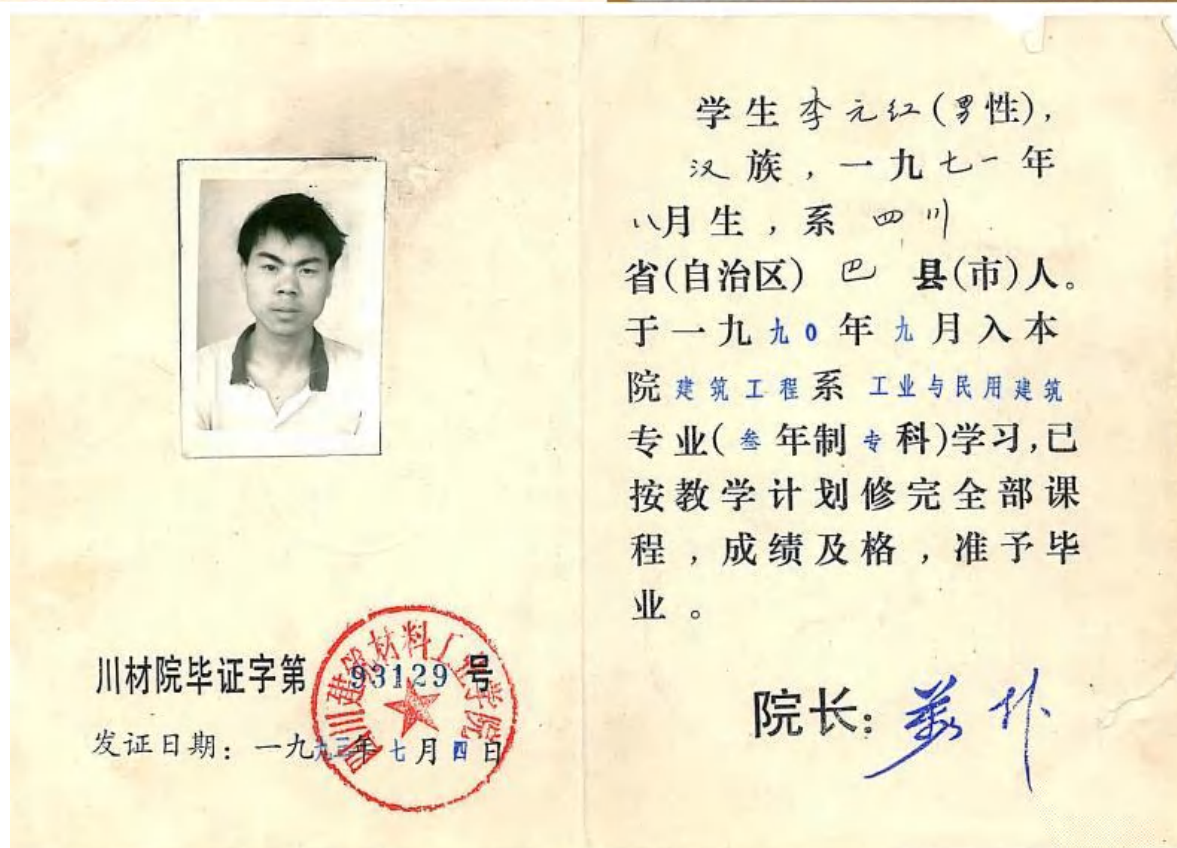 学生李元红(男性),
汉族,一九七一年
八月生,系四川
省(自治区)巴县(市)人。
于一九九0年九月入本
院建筑工程系工业与民用建筑
专业(叁年制专科)学习,已
按教学计划修完全部课
程,成绩及格,准予毕
业。
院长:
川材院毕证字第93129号
发证日期:一九九三年七月四日
四川建筑材料工业学院